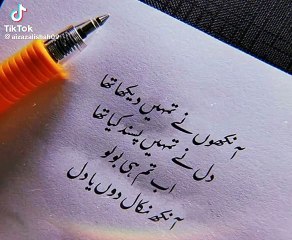 TikTok
@aizazalishah09
آنکھوں نے تمہیں دیکھا تھا
دل نے تمہیں پسند کیا تھا
اب تم ہی بولو
آنکھ نکال دوں یا دل